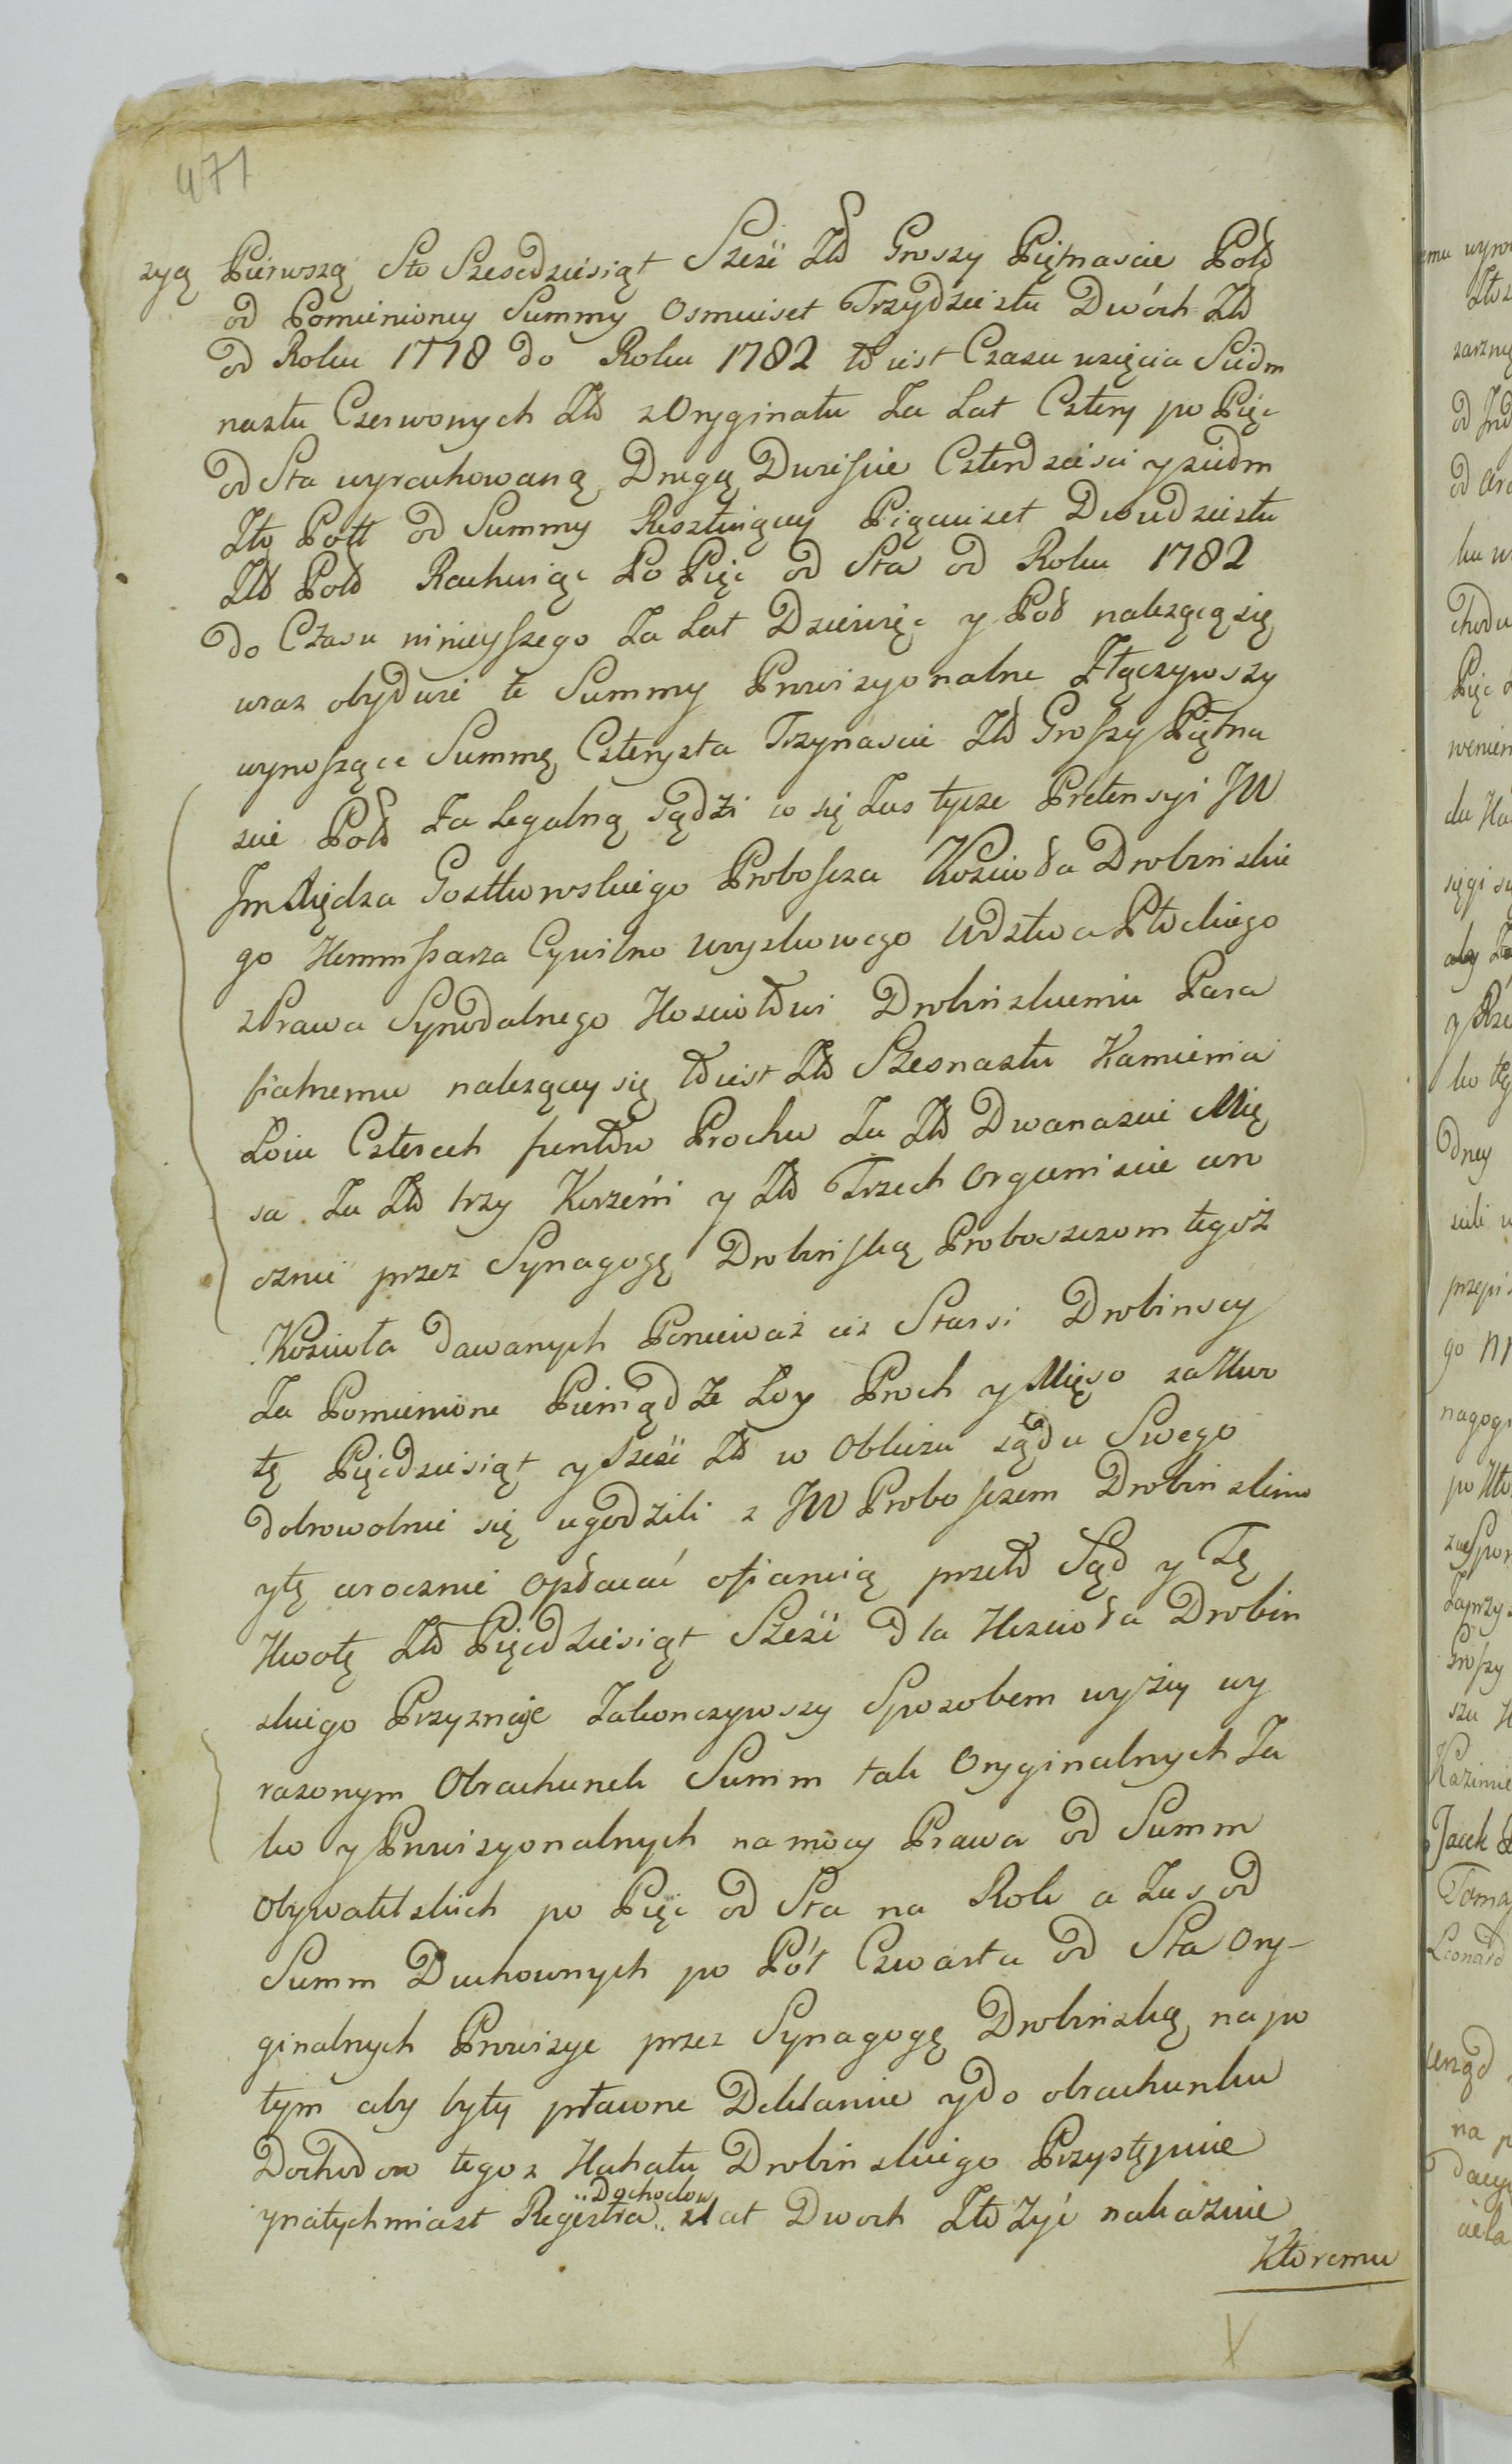 471
zyą Pierwszą Sto Szescdziesiąt Szesć Zło Groszy Piętnascie Poło
od Pomienioney Summy Osmiuset Trzydziestu Dwóch Zło
od Roku 1778 do Roku 1782 to iest Czasu wzięcia Siedm
nastu Czerwonych Zło z Oryginału Za Lat Cztery po Pięc
od Sta wyrachowaną Drugą Dwieście Czterdziesci y siedm
Zło Poll od Summy Resztuiącey Pięciuset Dwudziestu
Zło Pold Rachuiąc Po Pięc od Sta od Roku 1782
do Czasu ninieyszego Za Lat Dziewięc y Poł nalezącą się
wraz obydwie te Summy Prowizyonalne Złączywszy
wynoszące Summę Czterysta Trzynascie Zło Groszy Piętna
scie Pold Za Legalną sądzi co się Zas tycze Pretensyi JW
Jm Xiędza Gostkowskiego Proboszcza Kościoła Drobinskie
go Kommissarza Cywilno woyskowego Wdztwa Płockiego
z Prawa Synodalnego Kosciołowi Drobinskiemu Para
fialnemu nalezącey się to iest Zło Szesnastu Kamienia
Łoiu Czterech funtów Prochu Za Zło Dwanascie Mię
sa Za Zło trzy Korzeni y Zło Trzech Organiscie uro
cznie przez Synagogę Drobińską Proboszczom tegoż
Kosciola dawanych Ponieważ ciz Starsi Drobinscy
Za Pomienione Pieniądze Loy Proch y Mięso za Kwo
tę Pięcdziesiąt y Szesć Zło w Obliczu sądu Swego
dobrowolnie się ugodzili z JW Proboszczem Drobinskim
y tę urocznie opłacać ofiarnią przeto Sąd y Tę
Kwotę Zło Pięcdziesiąt Szesć dla Kosciola Drobin
skiego Przyznaje Zakonczywszy Sposobem wyżey wy
razonym Obrachunek Summ tak Oryginalnych Ja
ko y Prowizyonalnych na mocy Prawa od Summ
Obywatelskich po Pięc od Sta na Rok a Zas od
Summ Duchownych po Pół Czwarta od Sta Ory-
ginalnych Prowizye przez Synagogę Drobinską na po
tym aby były płacone Deklaruie y do obrachunku
Dochodow tegoz Kahału Drobinskiego Przystępuie
y natychmiast Regestra Dochodow z lat Dwoch Złożyć nakazuie
Ktoremu